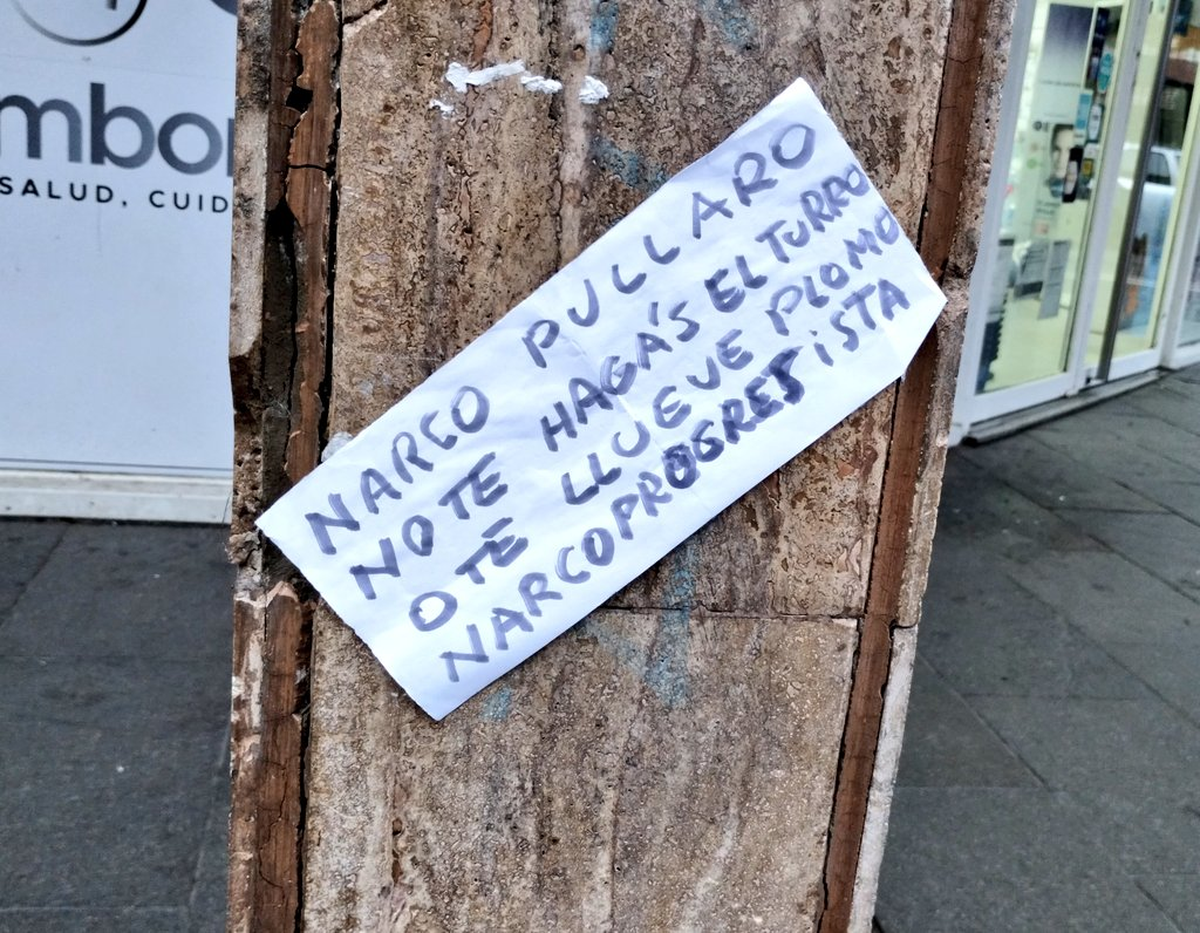 mbo
SALUD, CUID
NARCO PULLARO
NO TE HAGA'S EL TURRO
O TE LLUEVE PLOMO
NARCOPROGRESISTA